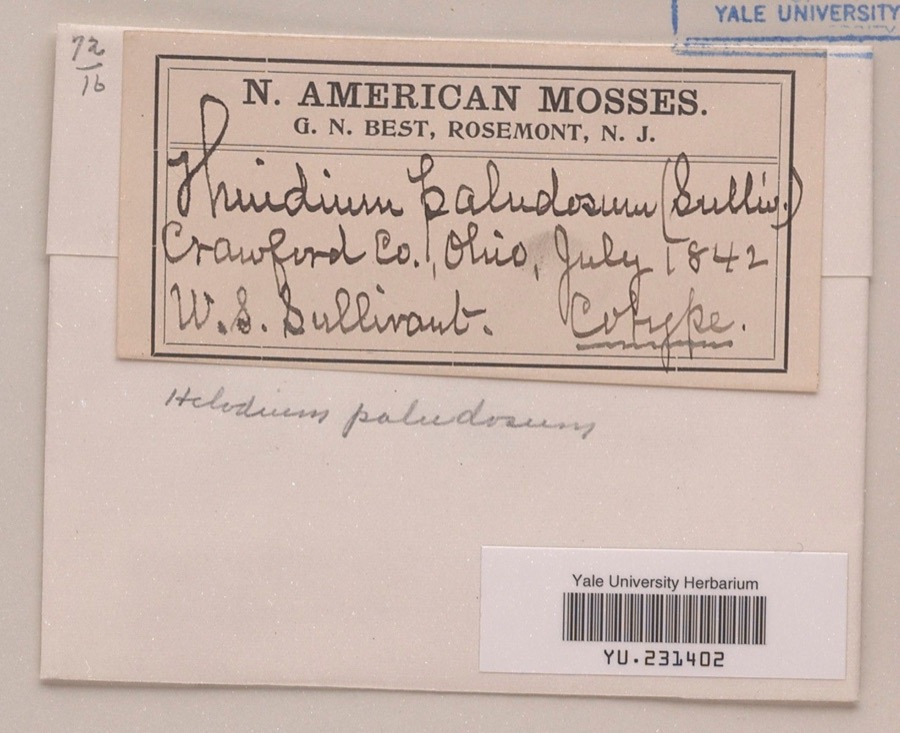 YALE UNIVERSITY
72
16
N. AMERICAN MOSSES.
G. N. BEST, ROSEMONT, N. J.
Thuidium paludosum (Sulliv.)
Crawford Co., Ohio, July 1842
W. S. Sullivant. Cotype.
Helodium paludosum
Yale University Herbarium
YU.231402